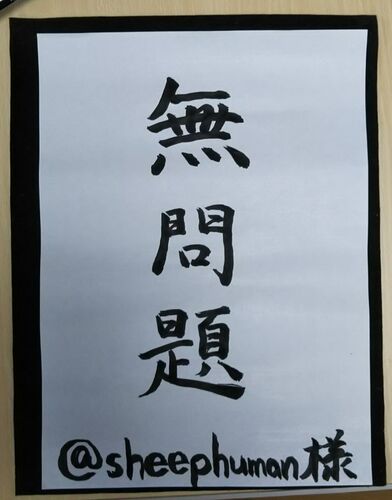 無問題
@sheephuman様